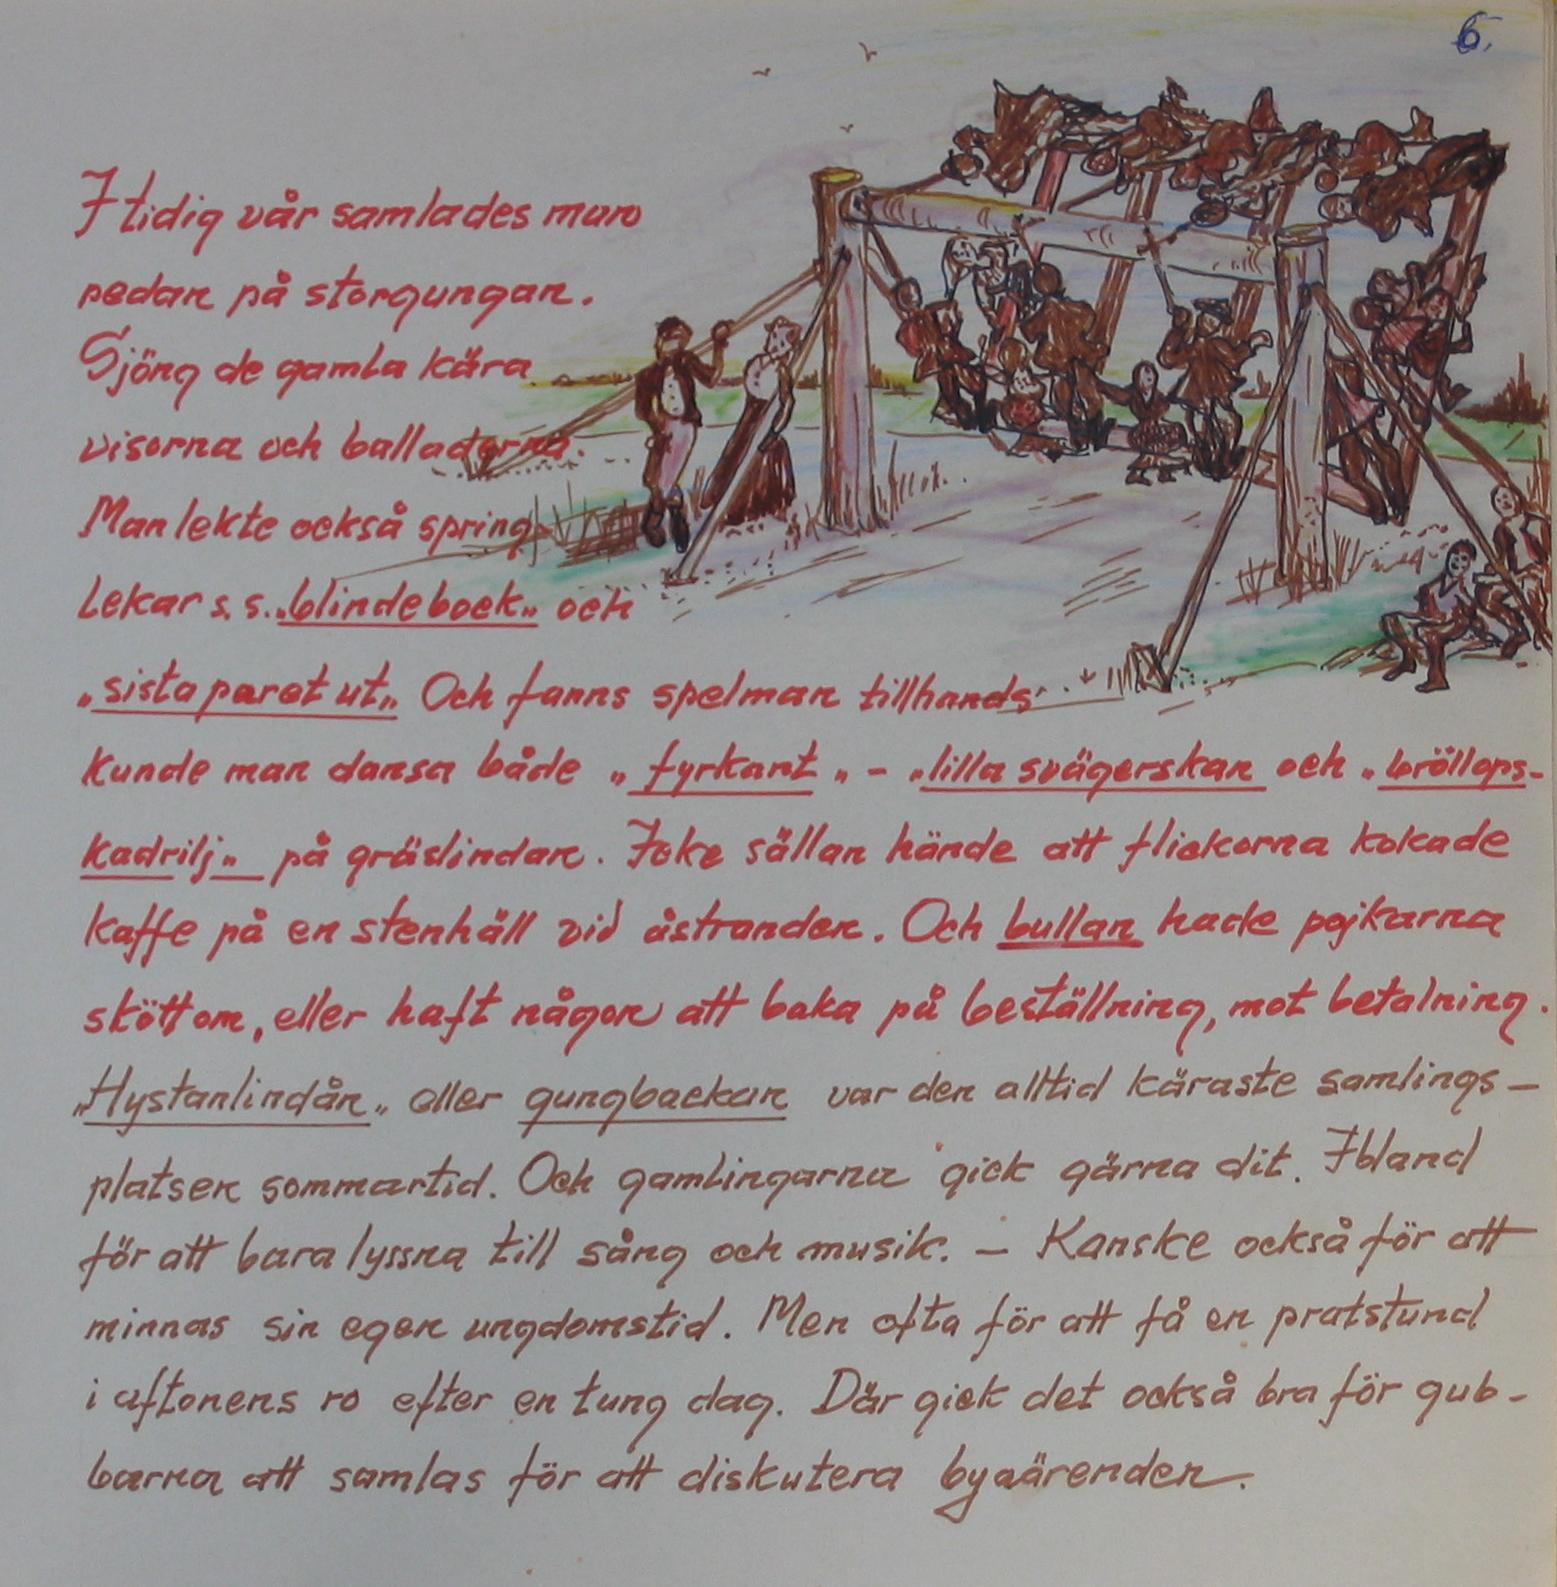 6.
I tidig vår samlades man
redan på storgungan.
Sjöng de gamla kära
visorna och balladerna.
Man lekte också spring
lekar s.s. „blindebock„ och
„sista paret ut„ Och fanns spelman tillhands
kunde man dansa både „fyrkant„ – „lilla svägerskan och „bröllops-
kadrilj„ på gräslindan. Icke sällan hände att flickorna kokade
kaffe på en stenhäll vid åstranden. Och bullan hade pojkarna
skött om, eller haft någon att baka på beställning, mot betalning.
„Hystanlindån„ eller gungbackan var den alltid käraste samlings–
platsen sommartid. Och gamlingarna gick gärna dit. Ibland
för att bara lyssna till sång och musik. – Kanske också för att
minnas sin egen ungdomstid. Men ofta för att få en pratstund
i aftonens ro efter en tung dag. Där gick det också bra för gub-
barna att samlas för att diskutera byaärenden.